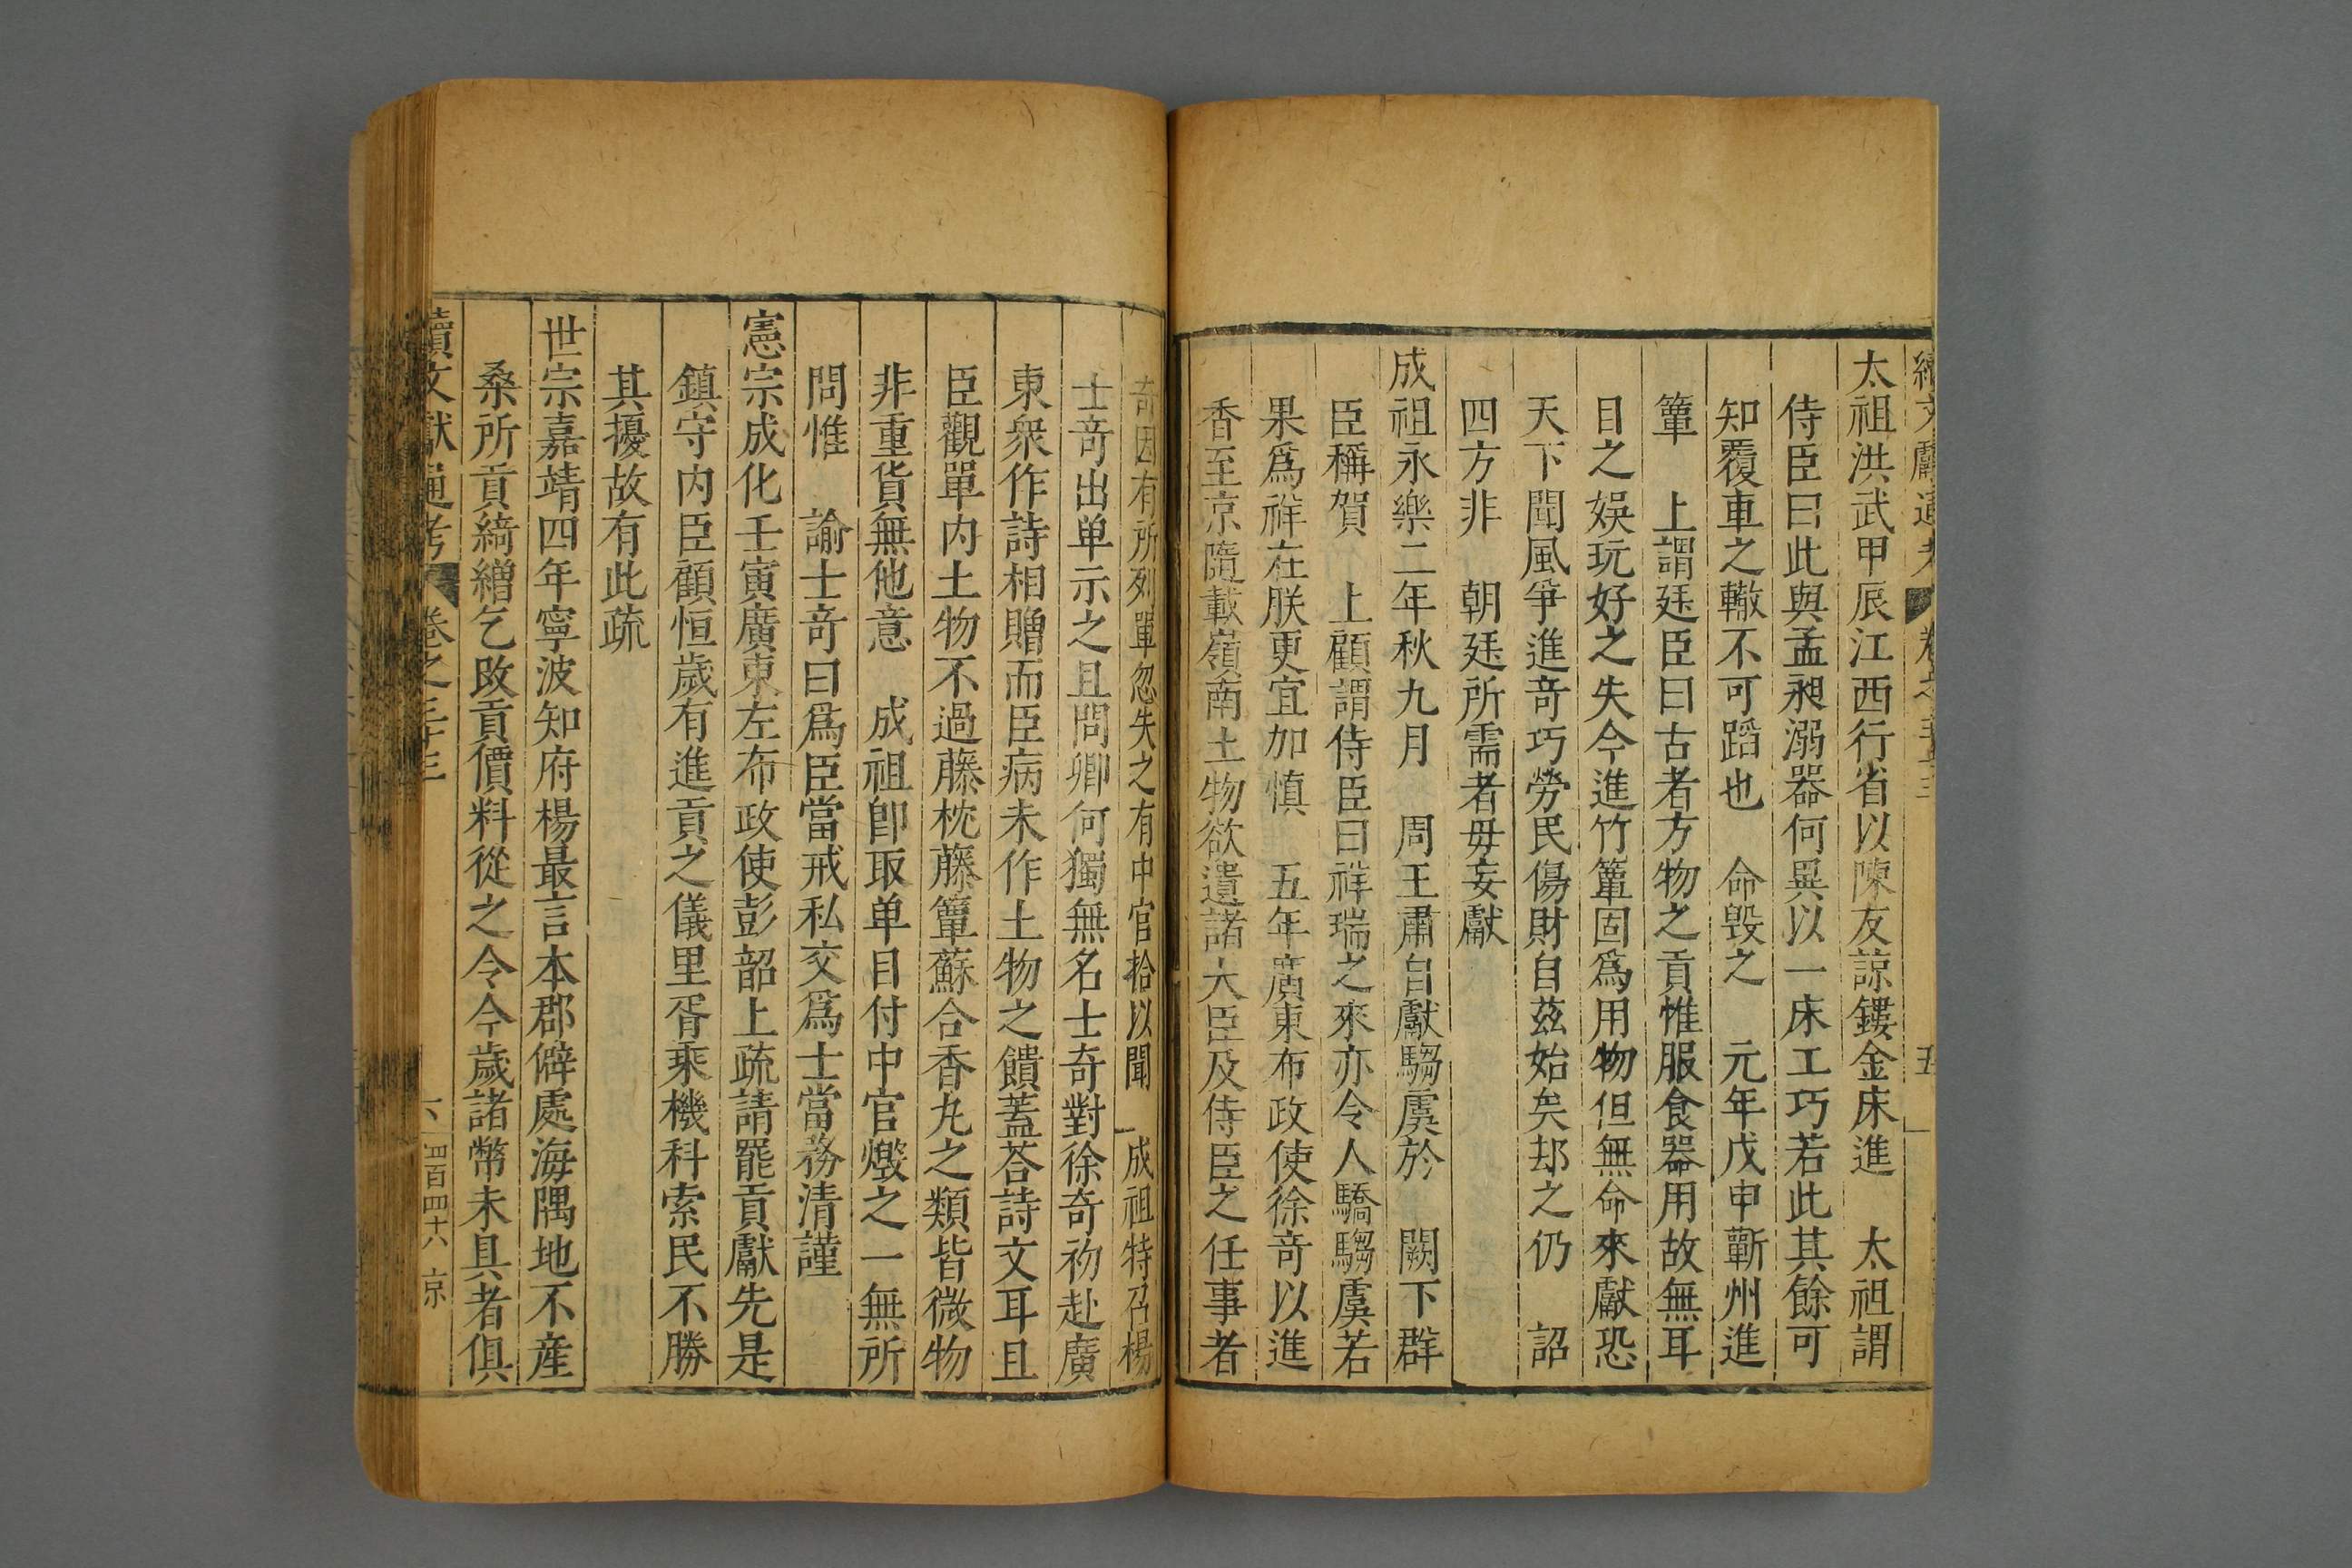 續文獻通考 卷之三十三 五
太祖洪武甲辰江西行省以陳友諒鏤金床進 太祖謂
侍臣曰此與孟昶溺器何異以一床工巧若此其餘可
知覆車之轍不可蹈也 命毀之 元年戊申蘄州進
簟 上謂廷臣曰古者方物之貢惟服食器用故無耳
目之娛玩好之失今進竹簟固爲用物但無命來獻恐
天下聞風爭進竒巧勞民傷財自兹始矣却之仍 詔
四方非 朝廷所需者毋妄獻
成祖永樂二年秋九月 周王肅自獻騶虞於 闕下群
臣稱賀 上顧謂侍臣曰祥瑞之來亦令人驕騶虞若
果爲祥在朕更宜加慎 五年廣東布政使徐竒以進
香至京隨載嶺南土物欲遺諸大臣及侍臣之任事者
竒因有所列單忽失之有中官拾以聞 成祖特召楊
士竒出单示之且問卿何獨無名士竒對徐竒初赴廣
東衆作詩相贈而臣病未作土物之饋蓋荅詩文耳且
臣觀單内土物不過藤枕藤簟蘇合香丸之類皆微物
非重貨無他意 成祖卽取单目付中官燬之一無所
問惟 諭士竒曰爲臣當戒私交爲士當務清謹
憲宗成化壬寅廣東左布政使彭韶上疏請罷貢獻先是
鎮守内臣顧恒歲有進貢之儀里胥乘機科索民不勝
其擾故有此疏
世宗嘉靖四年寧波知府楊最言本郡僻處海隅地不産
桑所貢綺繒乞改貢價料從之令今歲諸幣未具者俱
續文獻通考 卷之三十三 六 四百四十六 京